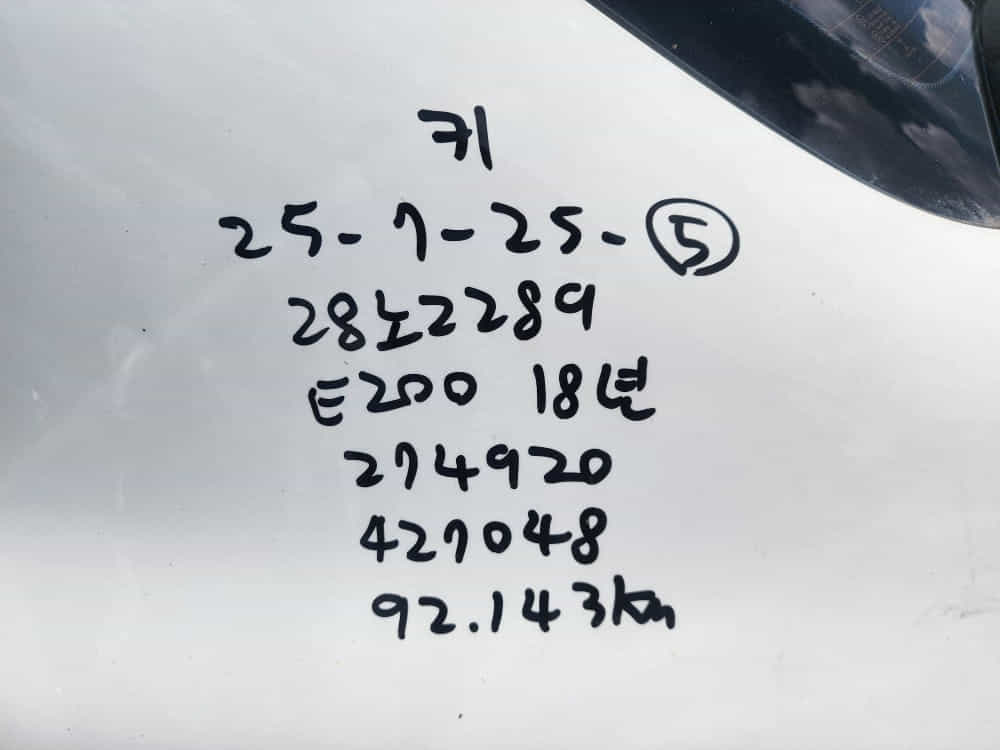 키
25-7-25-⑤
28노2289
E200 18년
274920
427048
92.143km